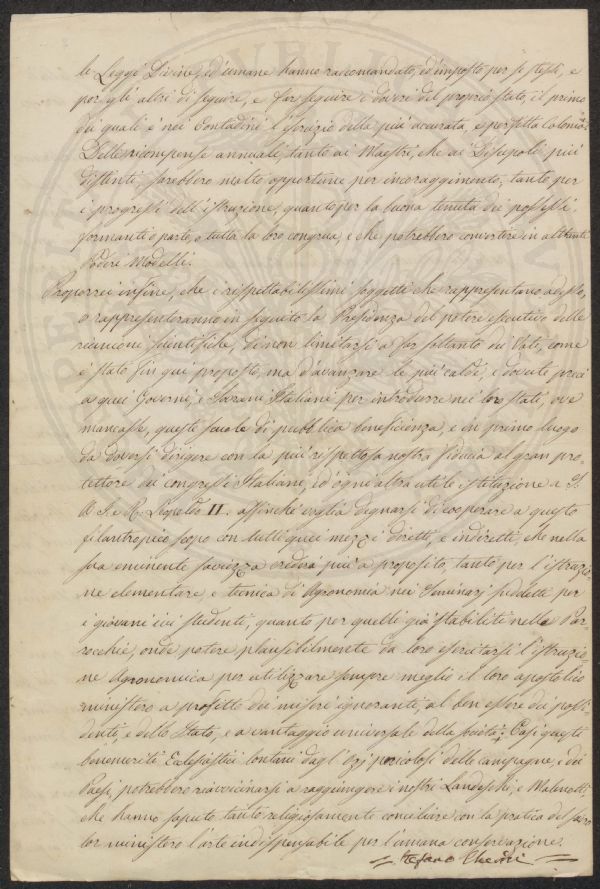 le Leggi Divine, ed umane hanno raccomandato, ed imposto per se stessi, e
per gli altri di seguire, e far seguire i doveri del proprio stato, il primo
dei quali è nei Contadini l'esercizio della più accurata, e perfetta colonia.
Delle ricompense annuali tanto ai Maestri, che ai Discepoli più
distinti, sarebbero molto opportune per incoraggimento, tanto per
i progressi dell'istruzione, quanto per la buona tenuta dei possessi
formanti o parte, o tutta la loro congrua, e che potrebbero convertire in altrettanti
Poderi Modelli.
Proporrei infine, che i rispettabilissimi soggetti che rappresentano adesso,
o rappresenteranno in seguito la Presidenza del potere esecutivo delle
riunioni scientifiche, di non limitarsi a far soltanto dei Voti, come
è stato fin qui proposto, ma d'avanzare le più calde, e dovute preci
a quei Governi, e Sovrani Italiani per introdurre nei loro stati, ove
mancasse, queste scuole di pubblica beneficenza, e in primo luogo
da doversi dirigere con la più rispettosa nostra fiducia al gran pro-
tettore dei congressi Italiani, ed ogni altra utile istituzione a S.
A. I. e R. Leopoldo II. affinchè voglia degnarsi di cooperare a questo
filantropico scopo con tutti quei mezzi diretti, e indiretti, che nella
sua eminente saviezza crederà più a proposito, tanto per l'istruzio-
ne elementare, e tecnica di Agronomia nei Seminarj suddetti per
i giovani ivi studenti, quanto per quelli già stabiliti nelle Par-
rocchie, onde potere plausibilmente da loro esercitarsi l'istruzio-
ne Agronomica per utilizzare sempre meglio il loro apostolico
ministero a profitto dei miseri ignoranti, al ben essere dei possi-
denti, e dello Stato, e a vantaggio universale della società: Così questi
benemeriti Ecclesiastici lontani dagl'ozj pericolosi delle campagne, e dei
Paesi, potrebbero riavvicinarsi a raggiungere i nostri Landeschi, e Malenotti,
che hanno saputo tanto religiosamente conciliare con la pratica del sacro
lor ministero l'arte indispensabile per l'umana conservazione.
Stefano